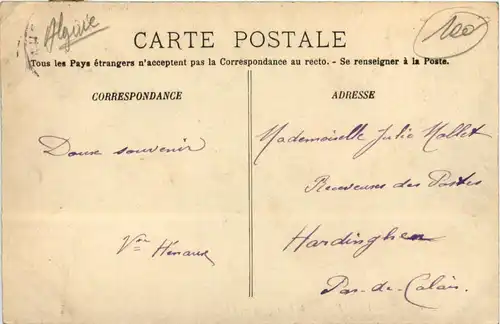 Algérie
100
CARTE POSTALE
Tous les Pays étrangers n'acceptent pas la Correspondance au recto. - Se renseigner à la Poste.
CORRESPONDANCE
Doux souvenir
Vve Hénaux
ADRESSE
Mademoiselle Julie Mallet
Receveuse des Postes
Hardinghen
Pas-de-Calais.